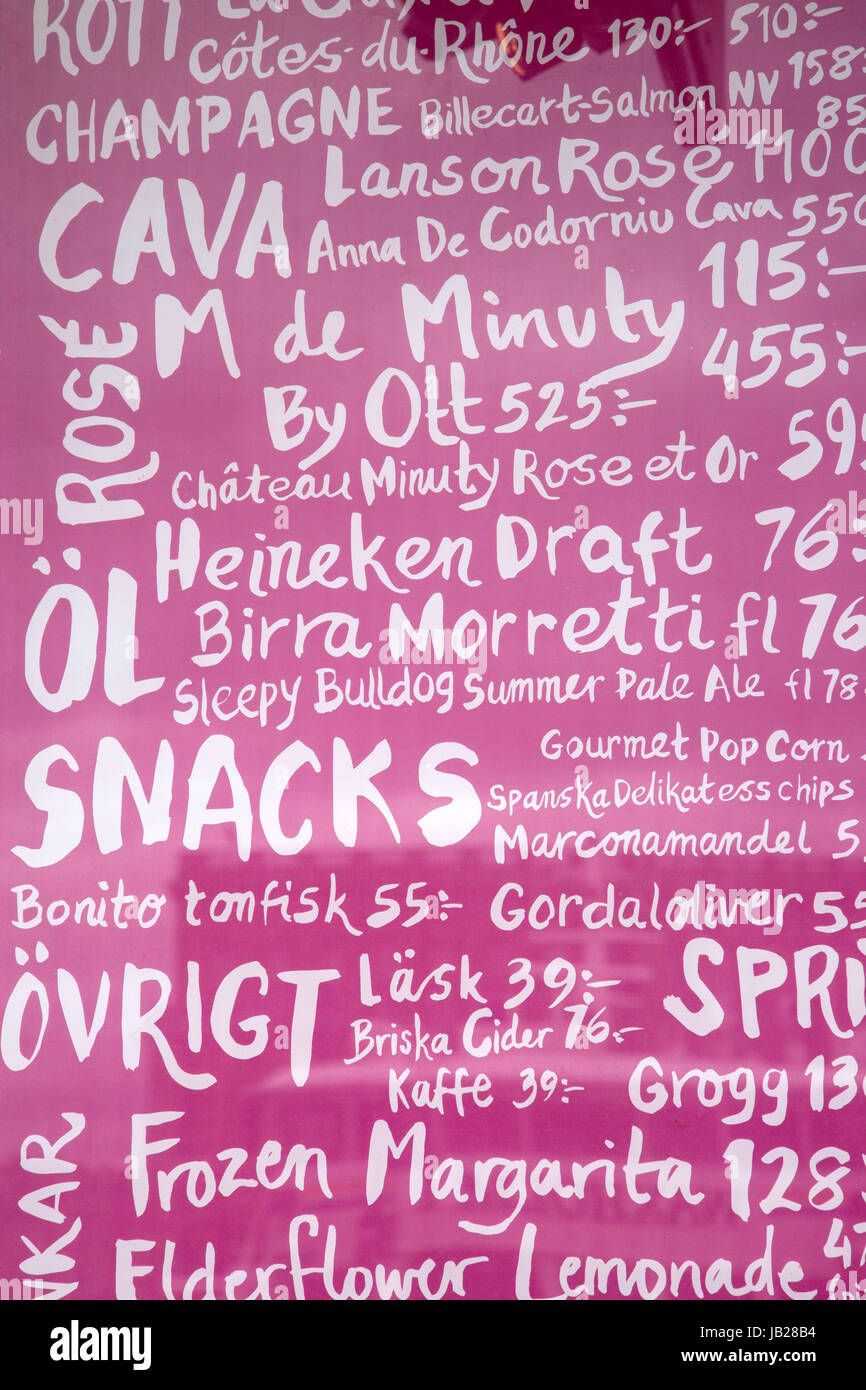 RÖTT
Côtes-du-Rhône 130:- 510:-
CHAMPAGNE Billecart-Salmon NV 158
85
Lanson Rosé 1100
CAVA Anna De Codorniu Cava 550
ROSÉ M de Minuty 115:-
455:-
By Ott 525:-
Château Minuty Rose et Or 595
ÖL Heineken Draft 76
Birra Morretti fl 76
Sleepy Bulldog Summer Pale Ale fl 78
SNACKS Gourmet Pop Corn
Spanska Delikatess chips
Marconamandel 5
Bonito tonfisk 55:- Gordaloliver 55
ÖVRIGT Läsk 39:- SPRI
Briska Cider 76:-
Kaffe 39:- Grogg 13
NKAR Frozen Margarita 128
Elderflower Lemonade 47
alamy
Image ID: JB28B4
www.alamy.com